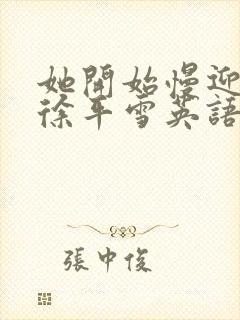 她開始慢迎
徐平雪英語
張中俊